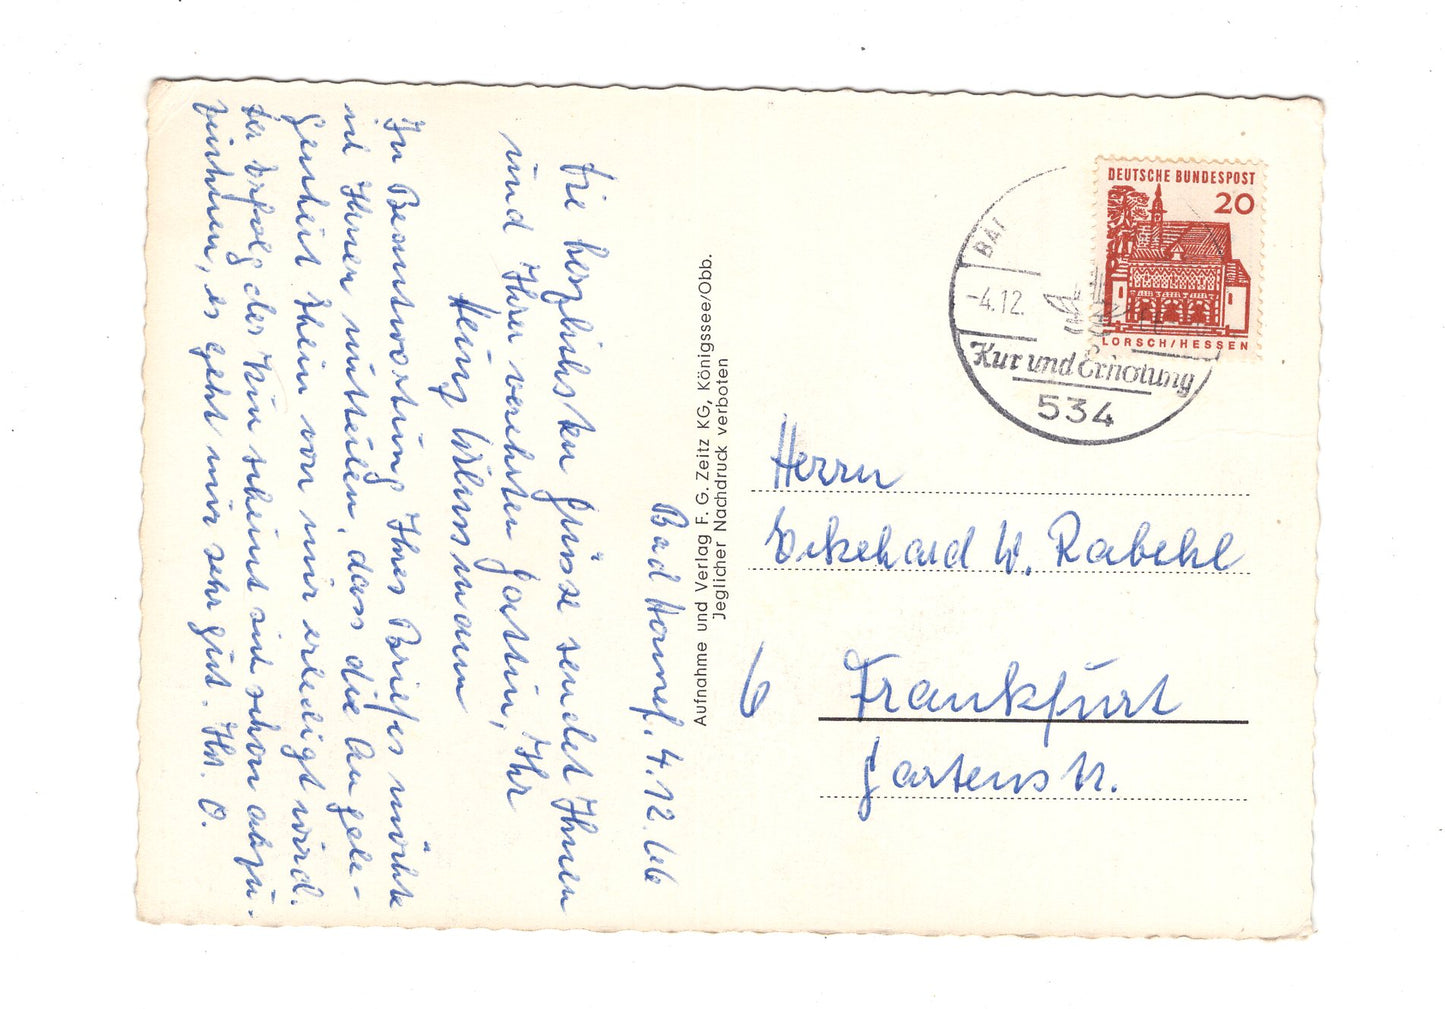 Bad Honnef, 4.12.66
Die herzlichsten Grüsse sendet Ihnen
und Ihrer verehrten Gattin, Ihr
Heinz
In Beantwortung Ihres Briefes möchte
ich Ihnen mitteilen, dass die Angele-
genheit Rhein von mir erledigt wird.
Der Erfolg der Kur scheint sich schon abzu-
zeichnen, es geht mir sehr gut. Ihr. O.
Aufnahme und Verlag F. G. Zeitz KG, Königssee/Obb.
Jeglicher Nachdruck verboten
DEUTSCHE BUNDESPOST
20
LORSCH/HESSEN
BAD
-4.12.
Kur und Erholung
534
Herrn
Eckehard W. Rabehl
6 Frankfurt
Gartenstr.